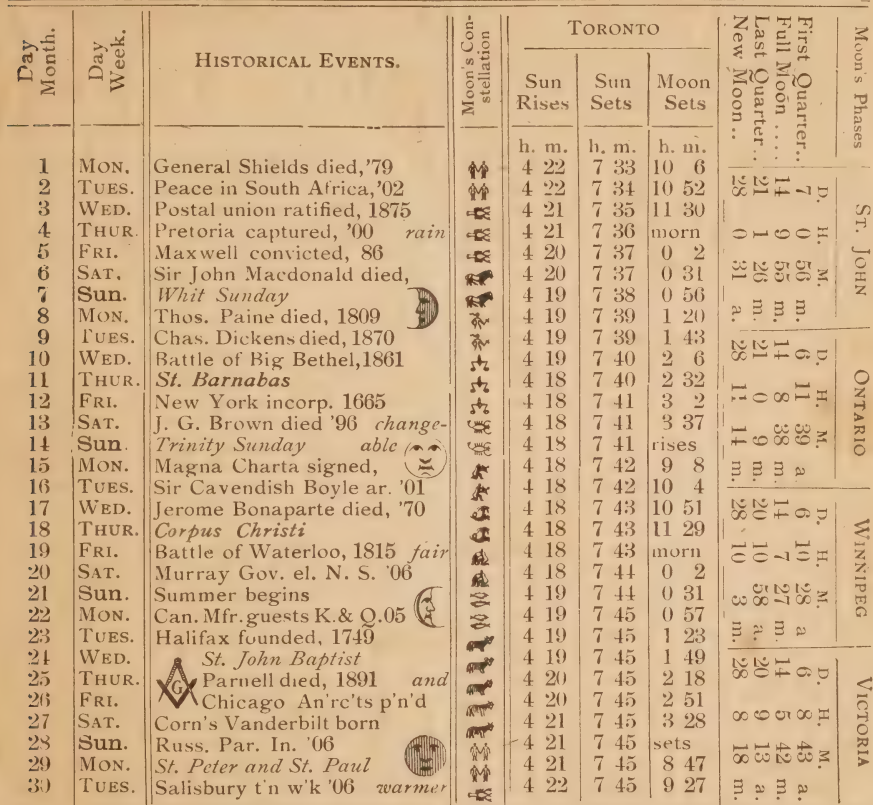 Day Month. Day Week. HISTORICAL EVENTS. Moon's Con-stellation TORONTO
Sun Rises Sun Sets Moon Sets
h. m. h. m. h. m.
1 MON. General Shields died,'79 4 22 7 33 10 6
2 TUES. Peace in South Africa,'02 4 22 7 34 10 52
3 WED. Postal union ratified, 1875 4 21 7 35 11 30
4 THUR. Pretoria captured, '00 rain 4 21 7 36 morn
5 FRI. Maxwell convicted, 86 4 20 7 37 0 2
6 SAT. Sir John Macdonald died, 4 20 7 37 0 31
7 Sun. Whit Sunday 4 19 7 38 0 56
8 MON. Thos. Paine died, 1809 4 19 7 39 1 20
9 TUES. Chas. Dickens died, 1870 4 19 7 39 1 43
10 WED. Battle of Big Bethel,1861 4 19 7 40 2 6
11 THUR. St. Barnabas 4 18 7 40 2 32
12 FRI. New York incorp. 1665 4 18 7 41 3 2
13 SAT. J. G. Brown died '96 change- 4 18 7 41 3 37
14 Sun. Trinity Sunday able 4 18 7 41 rises
15 MON. Magna Charta signed, 4 18 7 42 9 8
16 TUES. Sir Cavendish Boyle ar. '01 4 18 7 42 10 4
17 WED. Jerome Bonaparte died, '70 4 18 7 43 10 51
18 THUR. Corpus Christi 4 18 7 43 11 29
19 FRI. Battle of Waterloo, 1815 fair 4 18 7 43 morn
20 SAT. Murray Gov. el. N. S. '06 4 18 7 44 0 2
21 Sun. Summer begins 4 19 7 44 0 31
22 MON. Can. Mfr. guests K. & Q. 05 4 19 7 45 0 57
23 TUES. Halifax founded, 1749 4 19 7 45 1 23
24 WED. St. John Baptist 4 19 7 45 1 49
25 THUR. G Parnell died, 1891 and 4 20 7 45 2 18
26 FRI. Chicago An'rc'ts p'n'd 4 20 7 45 2 51
27 SAT. Corn's Vanderbilt born 4 21 7 45 3 28
28 Sun. Russ. Par. In. '06 4 21 7 45 sets
29 MON. St. Peter and St. Paul 4 21 7 45 8 47
30 TUES. Salisbury t'n w'k '06 warmer 4 22 7 45 9 27
Moon's Phases ST. JOHN ONTARIO WINNIPEG VICTORIA
D. H. M. D. H. M. D. H. M. D. H. M.
First Quarter.. 7 0 56 m. 6 11 39 a 6 10 28 a 6 8 43 a.
Full Moon .... 14 9 55 m. 14 8 38 m. 14 7 27 m. 14 5 42 m.
Last Quarter.. 21 1 26 m. 21 0 9 m. 20 10 58 a. 20 9 13 a.
New Moon.. 28 0 31 a. 28 11 14 m. 28 10 3 m. 28 8 18 m.